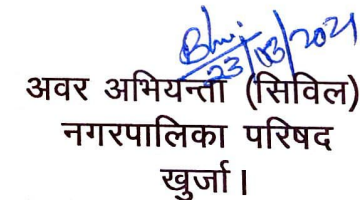 23/03/2021
अवर अभियन्ता (सिविल)
नगरपालिका परिषद
खुर्जा।